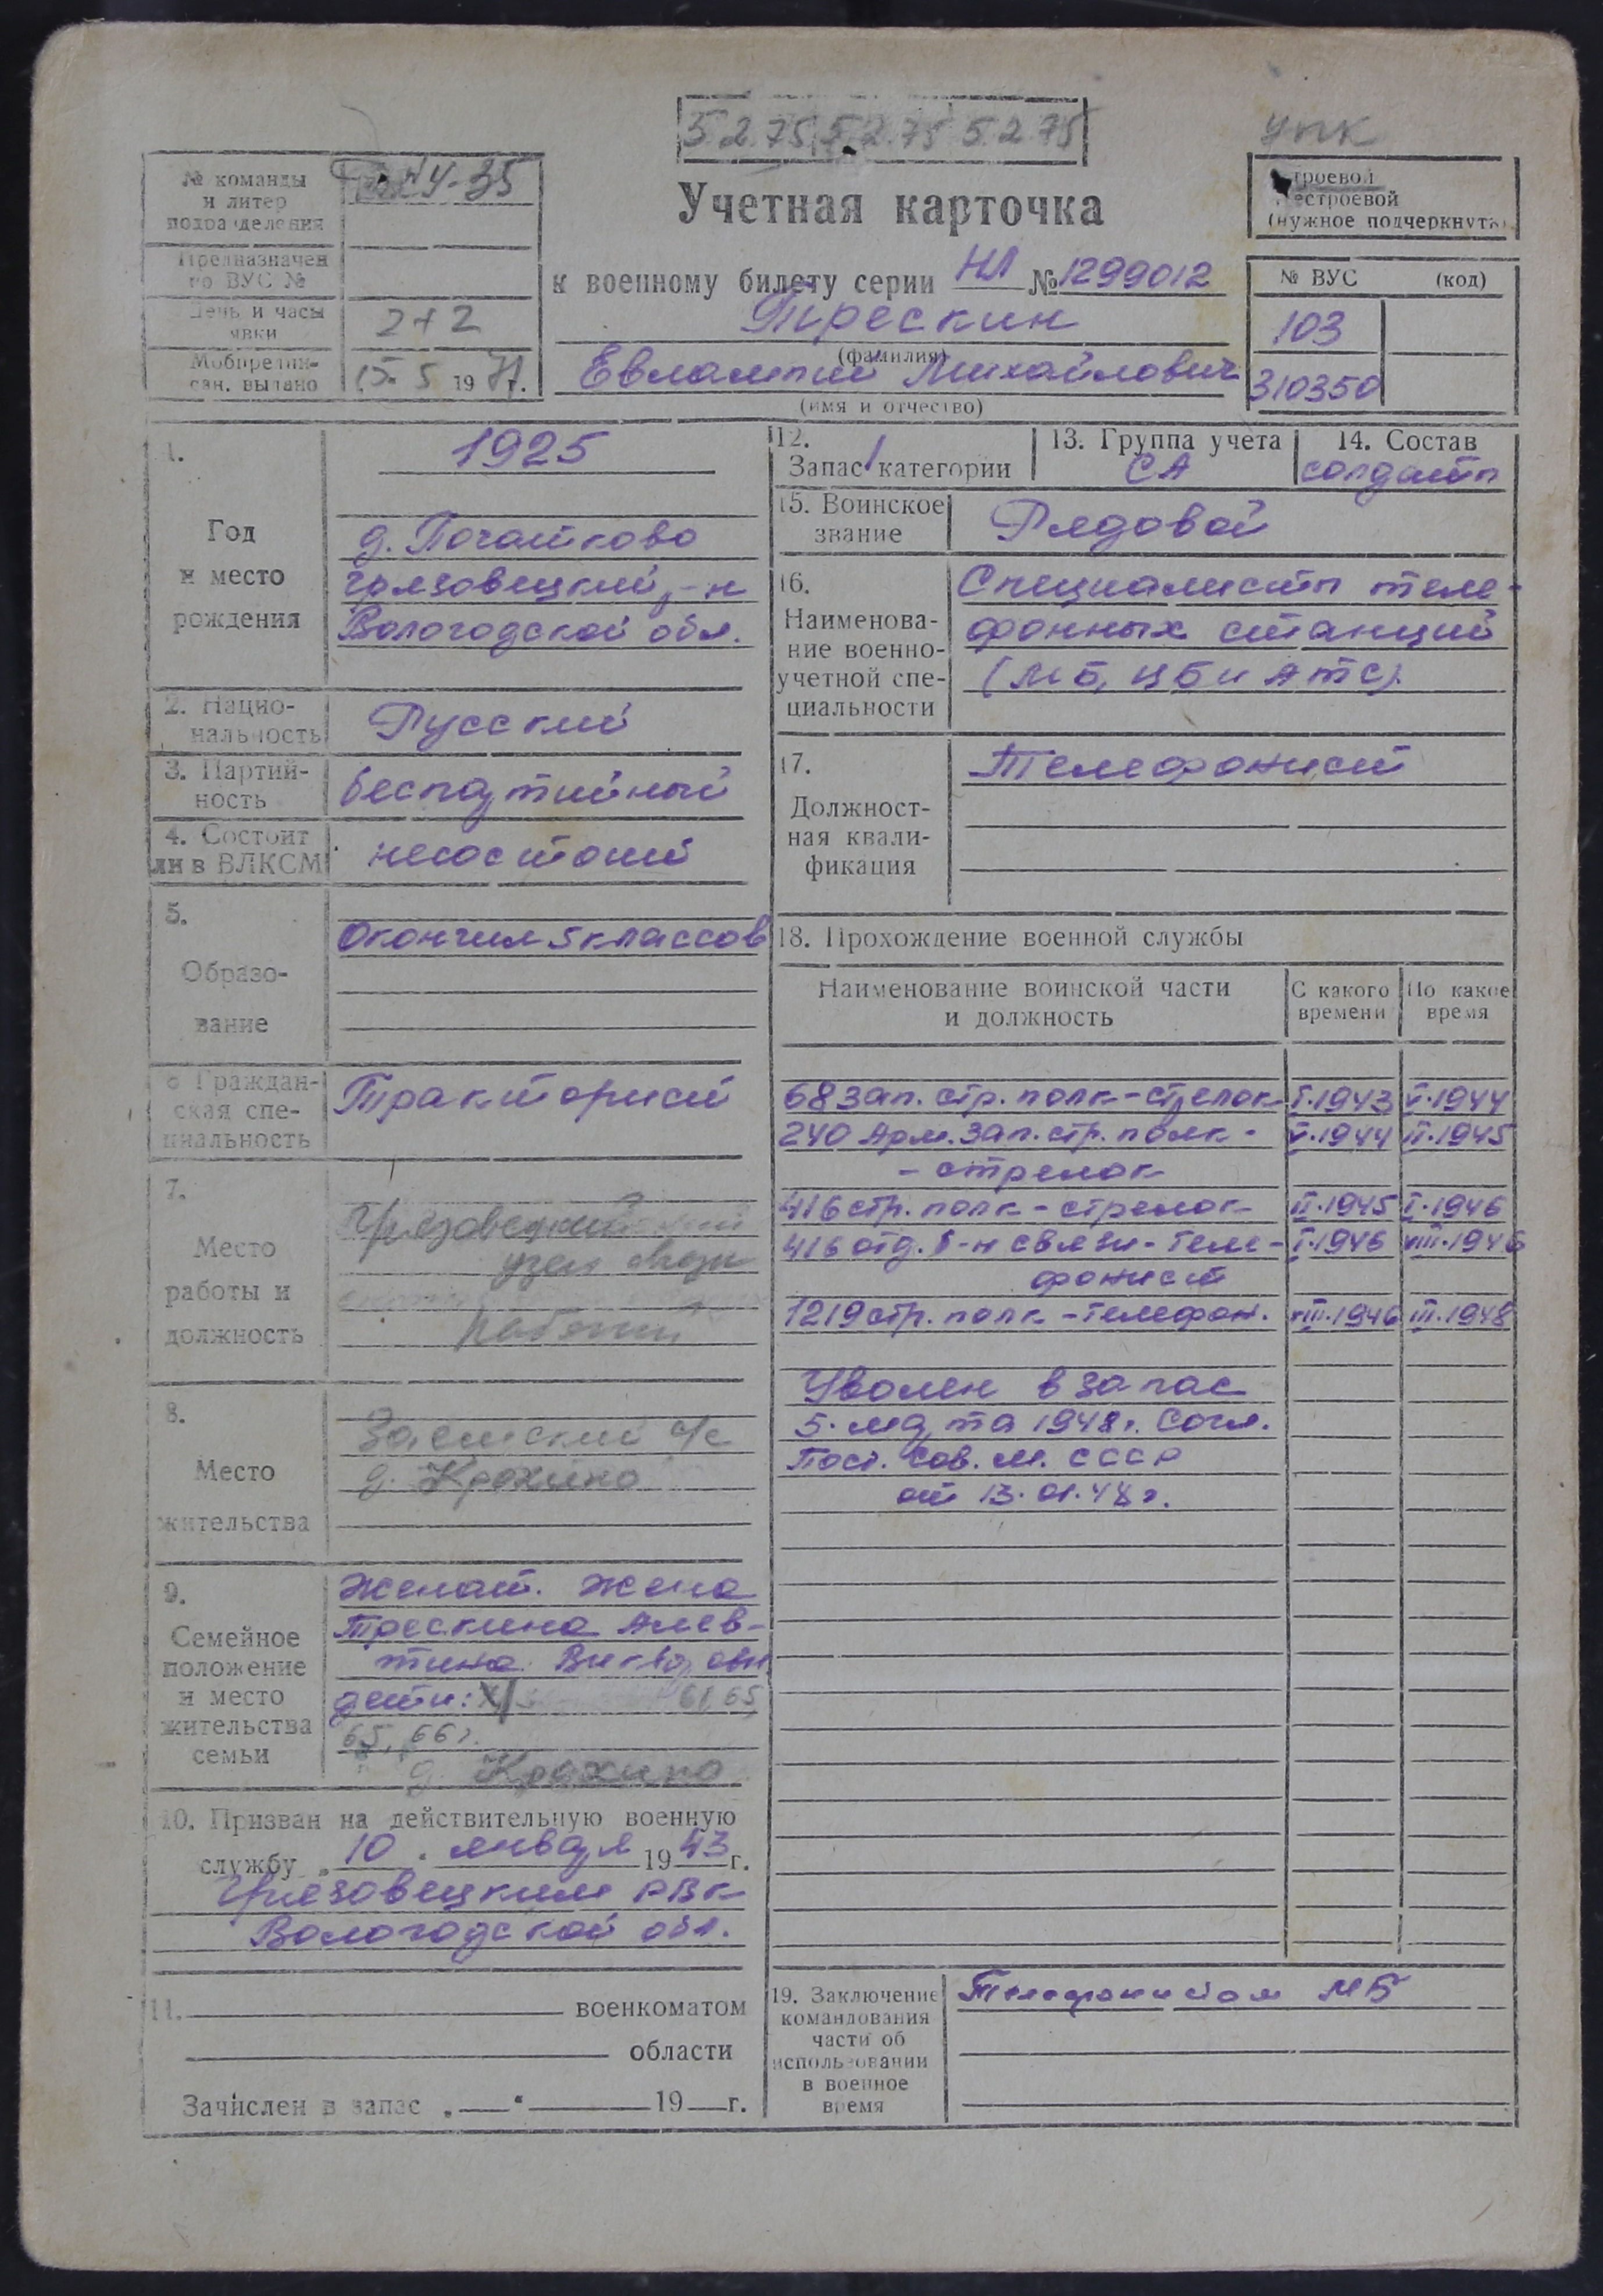 5.2.75 5.2.75 5.2.75
УПК
№ команды
и литер
подразделения
Предназначен
по ВУС №
День и часы
явки
2+2
Мобпредпи-
сан. выдано
15.5 1971г.
Учетная карточка
к военному билету серии НЛ № 1299012
Трескин
(фамилия)
Евлампий Михайлович
(имя и отчество)
строевой
нестроевой
(нужное подчеркнуть)
№ ВУС (код)
103
310350
1.
Год
и место
рождения
1925
д. Початково
Грязовецкий р-н
Вологодской обл.
2. Нацио-
нальность
Русский
3. Партий-
ность
беспартийный
4. Состоит
ли в ВЛКСМ
несостоит
5.
Образо-
вание
Окончил 5 классов
6 Граждан-
ская спе-
циальность
Тракторист
7.
Место
работы и
должность
Грязовецкий
узел связи
рабочий
8.
Место
жительства
Заемский с/с
д. Крохино
9.
Семейное
положение
и место
жительства
семьи
Женат. Жена
Трескина Алев-
тина Викторовн
дети: 61, 65,
65, 66г.
д. Крохино
10. Призван на действительную военную
службу „10“ января 1943 г.
Грязовецким РВК
Вологодской обл.
11. военкоматом
области
Зачислен в запас „ “ 19 г.
12.
Запас 1 категории
13. Группа учета
СА
14. Состав
солдат
15. Воинское
звание
Рядовой
16.
Наименова-
ние военно-
учетной спе-
циальности
Специалист теле-
фонных станций
(МБ, ЦБ и АТС).
17.
Должност-
ная квали-
фикация
Телефонист
18. Прохождение военной службы
Наименование воинской части
и должность
С какого
времени
По какое
время
68 зап. стр. полк - стрелок I.1943 V.1944
240 Арм. зап. стр. полк - V.1944 II.1945
- стрелок
416 стр. полк - стрелок II.1945 I.1946
416 отд. б-н связи - теле- I.1946 VIII.1946
фонист
1219 стр. полк - телефон. VIII.1946 III.1948
Уволен в запас
5. марта 1948г. Согл.
Пост. Сов. М. СССР
от 13.01.48г.
19. Заключение
командования
части об
использовании
в военное
время
Телефонистом МБ